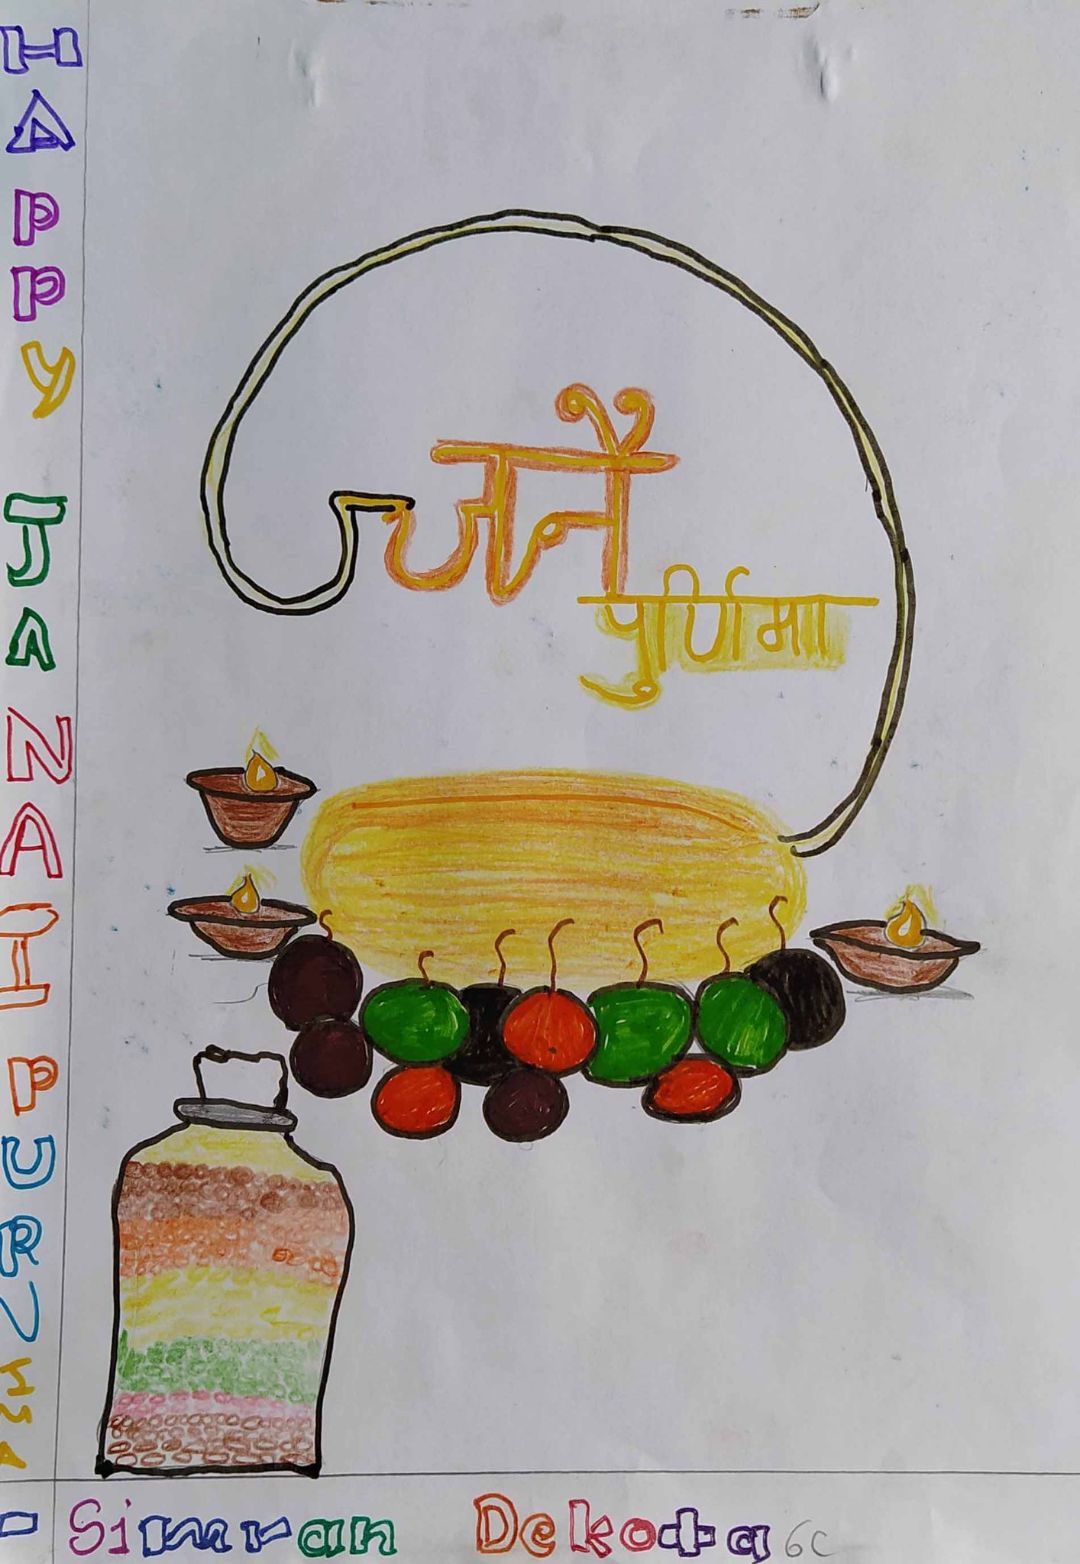 HAPPY JANAI PURNIMA
जनै
पुर्णिमा
- Simran Dekota 6C